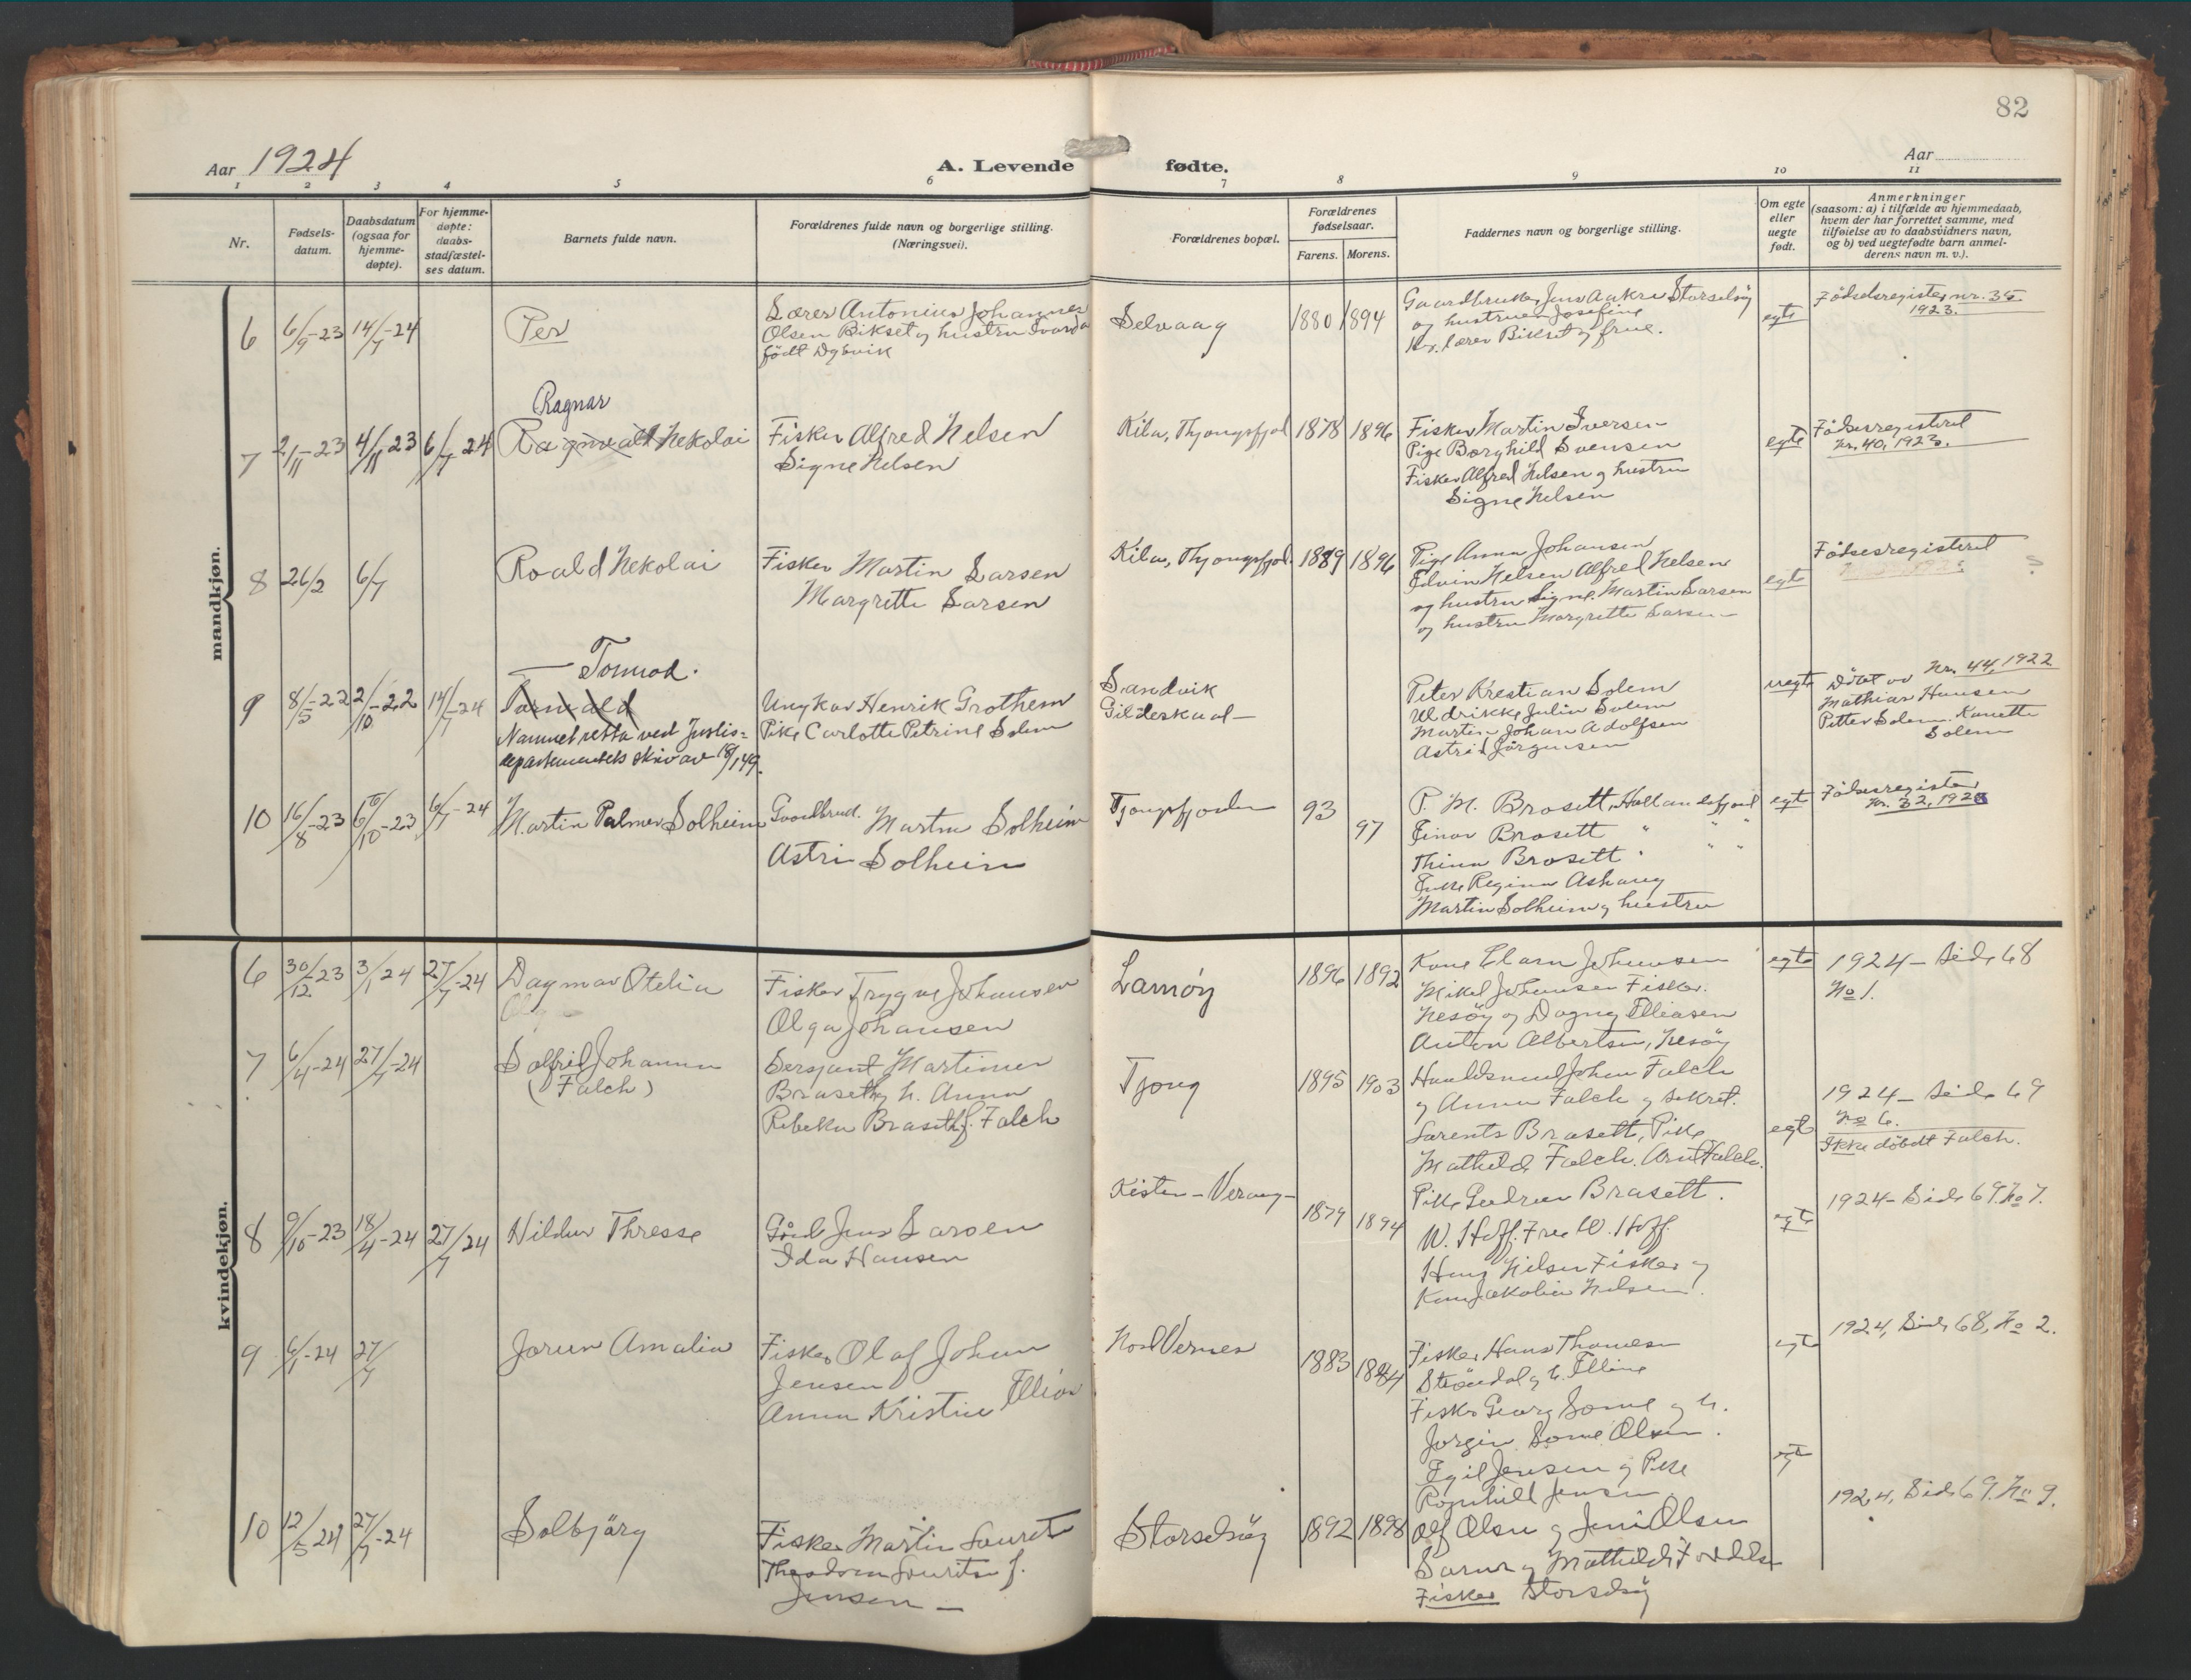 82
Aar 1924
A. Levende fødte.
Aar
1 2 3 4 5 6 7 8 9 10 11
Nr.
Fødsels-
datum.
Daabsdatum
(ogsaa for
hjemme-
døpte).
For hjemme-
døpte:
daabs-
stadfæstel-
ses datum.
Barnets fulde navn.
Forældrenes fulde navn og borgerlige stilling.
(Næringsvei).
Forældrenes bopæl.
Forældrenes
fødselsaar.
Farens. Morens.
Faddernes navn og borgerlige stilling.
Om egte
eller
uegte
født.
Anmerkninger
(saasom: a) i tilfælde av hjemmedaab,
hvem der har forrettet samme, med
tilføielse av to daabsvidners navn,
og b) ved uegtefødte barn anmel-
derens navn m. v.).
mandkjøn.
6 6/9-23 14/7-24
Per
Lærer Antonius Johannes
Olsen Bikset og hustru
født Dybvik
Selvaag
1880 1894
Gaardbruker Jens Aakre Storselsöy
og hustru Josefine
lærer Bikset og frue.
egte
Födselsregister nr. 35
1923.
7 2/11-23 4/11 23 6/7 24
Ragnar
Ragnvald Nekolai
Fisker Alfred Nelsen
Signe Nelsen
Kila, Thjongsfjord
1878 1896
Fisker Martin Iversen
Pige Borghild Svensen
Fisker Alfred Nelsen og hustru
Signe Nelsen
egte
Födsesregisteret
Nr. 40, 1923.
8 26/2 6/7
Roald Nekolai
Fisker Martin Larsen
Margrette Larsen
Kila, Thjongsfjord
1889 1896
Pige Anna Johansen
Edvin Nelsen Alfred Nelsen
og hustru Signe. Martin Larsen
og hustru Margrette Larsen
egte
Födsesregisteret
9 8/5-22 2/10-22 14/7-24
Tormod.
Namnet retta ved Justis=
departementets skriv av 18/1 49.
Ungkar Henrik Grothem
Pike Carlotte Petrine Solem
Sandvik
Gilderskaal
Peter Krestian Solem
Uldrikke Julia Solem
Martin Johan Adolfsen
Astrid Jörgensen
uegte
Döbt av Nr. 44, 1922
Mathias Hansen
Petter Solem. Kanutte
Solem
10 16/8-23 6/10-23 6/7-24
Martin Palmer Solheim
Gaardbruk. Martin Solheim
Astri Solheim
Tjongsfjorden
93 97
P. M. Brasett, Hollandsfjord
Einar Brasett " " "
Thina Brasett " " "
Enke Regina Ashaug
Martin Solheim og hustru
egte
Födsesregister
Nr. 32, 1923
kvindekjøn.
6 30/12-23 3/1 24 27/7-24
Dagmar Otelia
Fisker Trygve Johansen
Olga Johansen
Lamøy
1896 1892
Kone Clara Johansen
Mikal Johansen Fisker.
Nesöy og Dagny Elliasen
Anton Albertsen, Nesöy
egte
1924 - Side 68
No 1.
7 6/4-24 27/7-24
Solfrid Johanna
(Falch)
Sersjant Martinus
Braseth og h. Anna
Rebekka Braseth f. Falch
Tjong
1895 1903
Handelsmand Johan Falch
og Anna Falch og sekret.
Larents Brasett, Pike
Mathilde Falch. Arnt Falch.
egte
1924 - Side 69
No 6.
Ikke döbdt Falch.
8 9/10-23 18/4-24 27/7 24
Hildur Thresse
Gård Jens Larsen
Ida Hansen
Kisten - Verang -
1879 1894
Pike Gudrun Brasett.
W. Hoff. Frue W. Hoff.
Hans Nilsen Fisker og
Kone Jakobine Nilsen.
egte
1924 - Side 69. No 7.
9 6/1-24 27/7
Jorun Amalia
Fisker Olaf Johan
Jensen
Anna Kristine
Nord Vernes
1883 1884
Fisker Hans Thomesen
Ströndal og h. Elline
Fisker Georg Sørme og h.
Jorgin Sørme Olsen.
Egil Jensen og Pike
Ragnhild Jensen
egte
egte
1924, Side 68, No 2.
10 12/5 24 27/7-24
Solbjörg
Fisker Martin
f.
Jensen -
Storselsöy
1892 1898
Olf Olsen og Jenni Olsen
og Mathilde
Fisker Storselsöy
1924, Side 69. No 9.